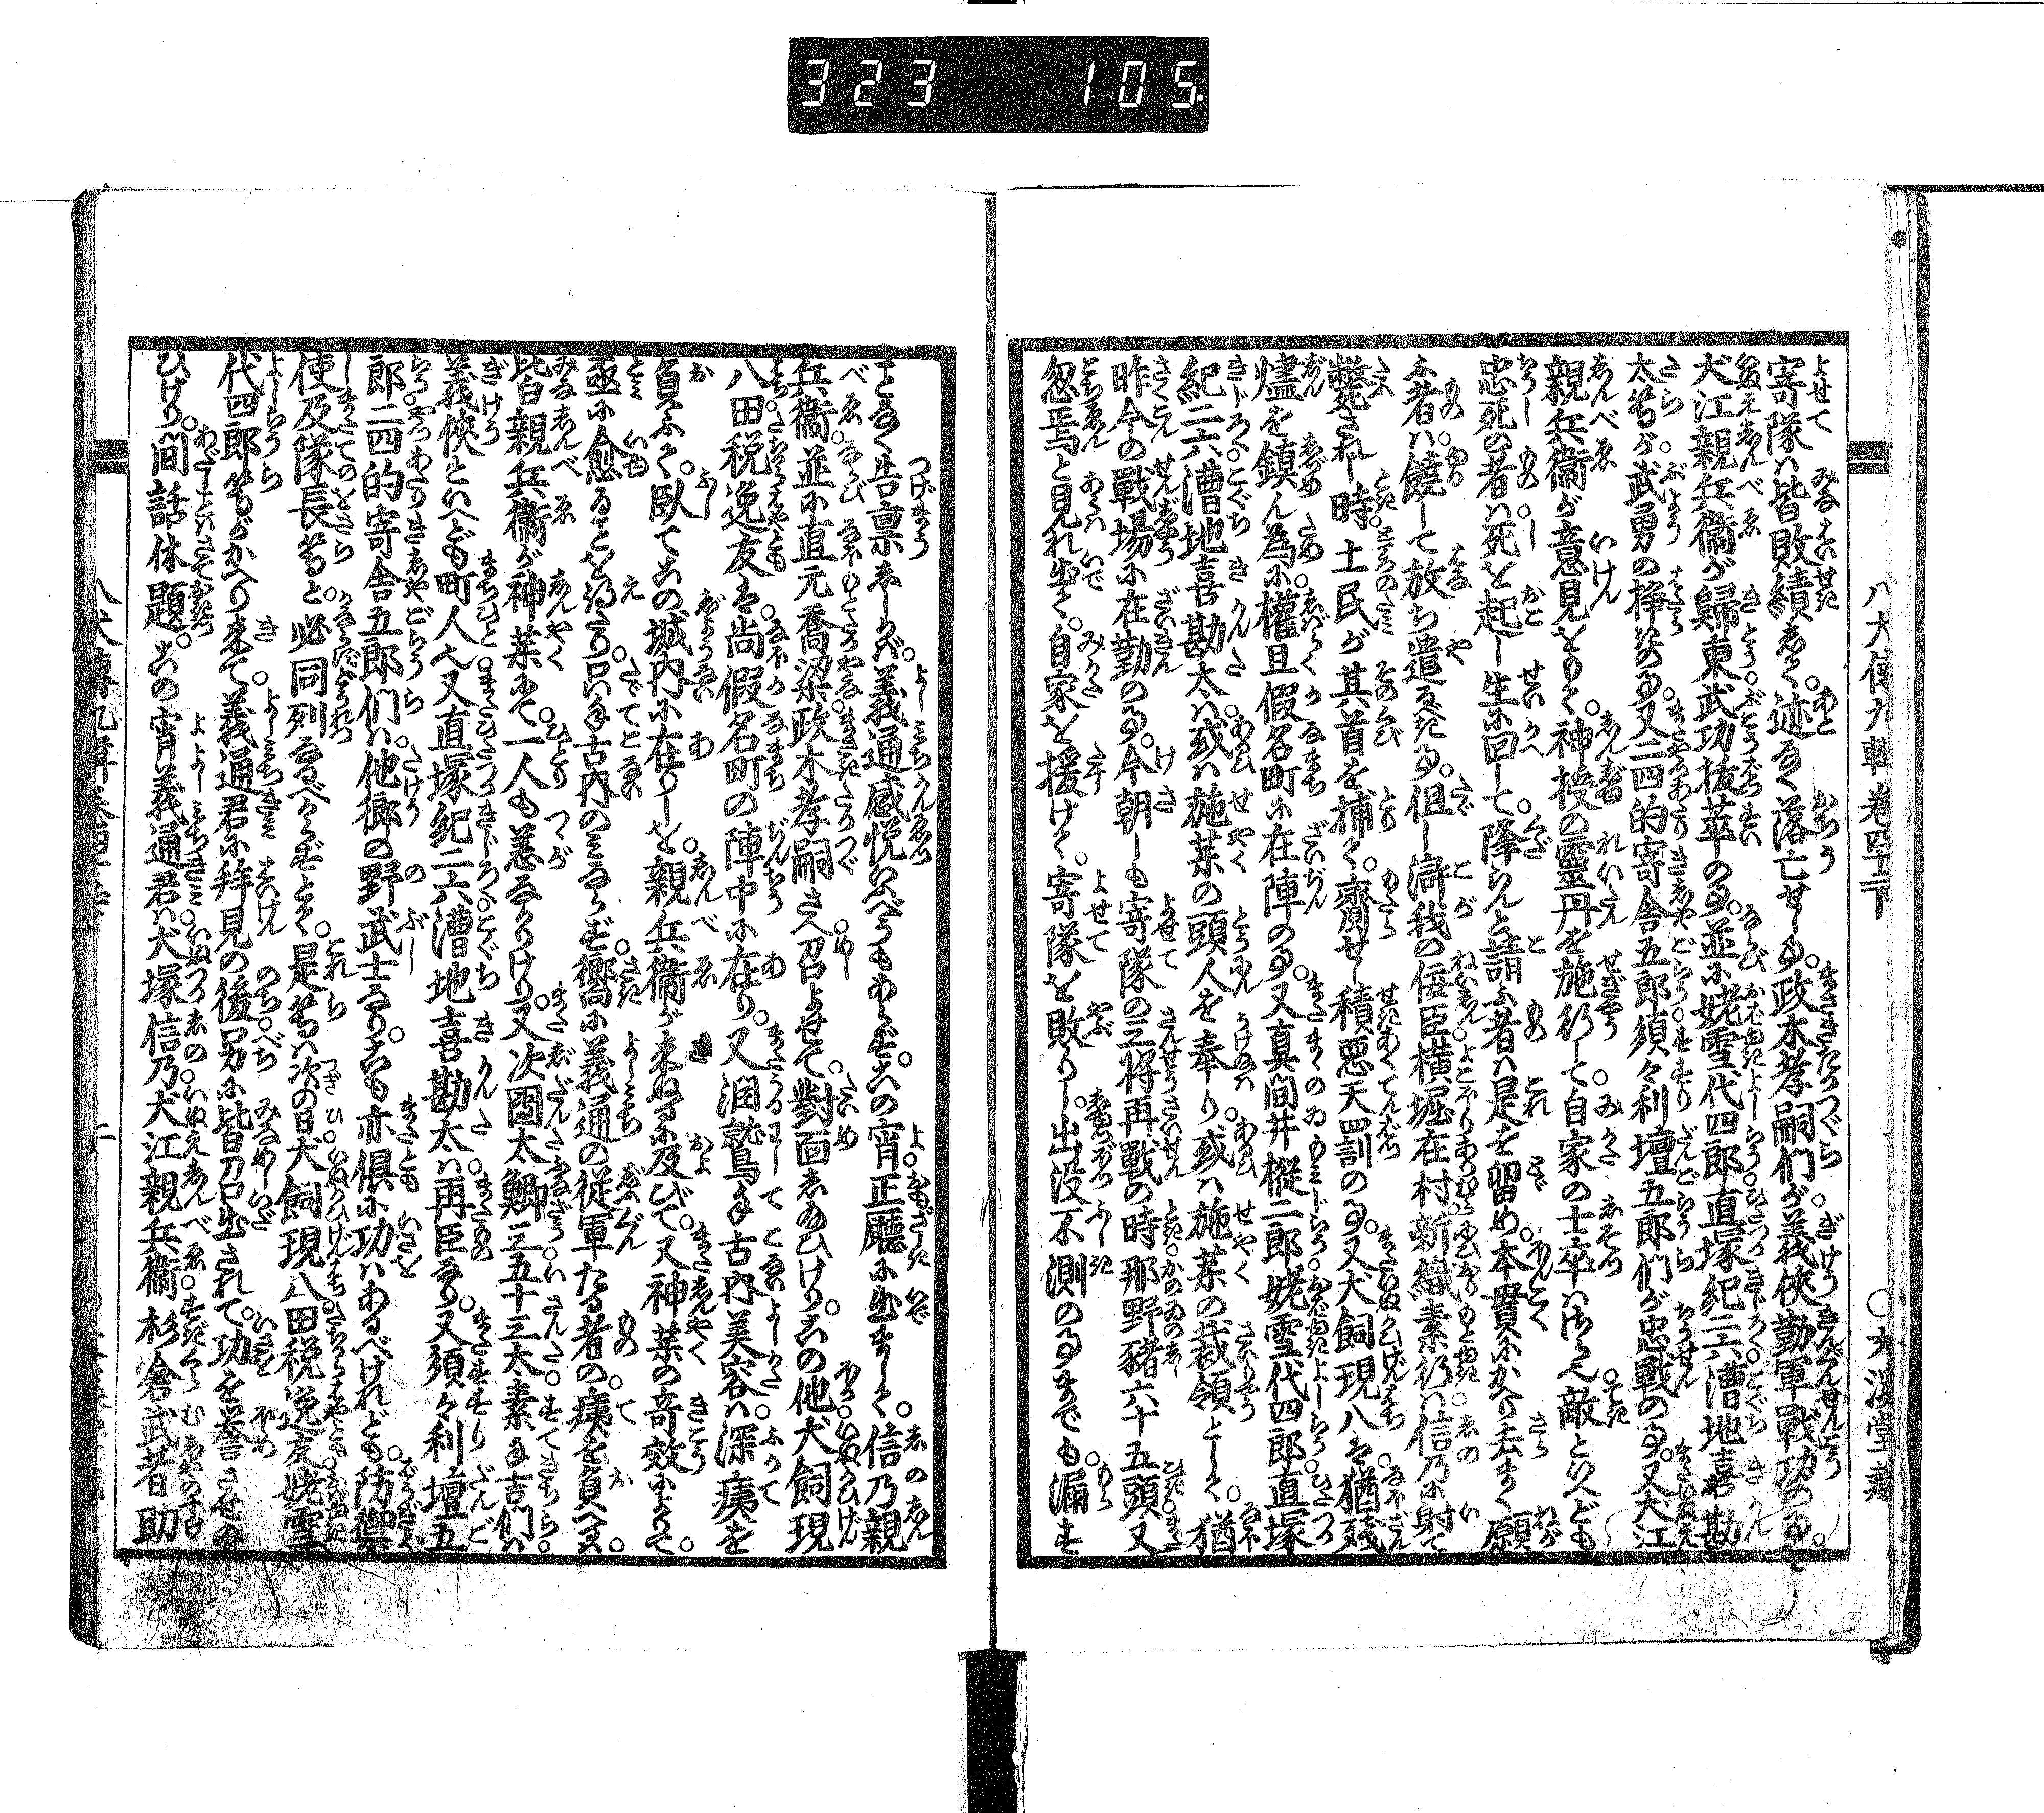 323 105
八犬傳九輯卷四十二下
○文溪堂藏
寄隊ハ皆敗績して。迹なく落亡せし事。政木孝嗣們が義俠勤軍戰功の事。
犬江親兵衞が歸東武功拔萃の事。並に姥雪代四郎直塚紀二六漕地喜勘
太等が。武勇の挣ぎの事。又二四的寄舎五郎須々利壇五郎們が忠戰の事。又犬江
親兵衞が意見をもて。神授の靈丹を施行して。自家の士卒ハさら也。敵といへども
忠死の者ハ。死を起し生に回して。降らんと請ふ者ハ是を留め。本貫にかへり去まく願
ふ者ハ。饒して放ち遣るべき事。但し滸我の佞臣。横堀在村。新織素行ハ。信乃に射て
斃されし時。土民が其首を捕て。齎せし積惡天罰の事。又犬飼現八ハ猶殘
燼を鎮ん為に。權且假名町に在陣の事。又真間井樅二郎。姥雪代四郎。直塚
紀二六。漕地喜勘太ハ。或ハ施藥の頭人を奉り。或ハ施藥の裁領として。猶
昨今の戰場に在勤の事。今朝しも寄隊の三將再戰の時。那野豬六十五頭又
忽焉と見れ出て。自家を援けて。寄隊を敗りし。出没不測の事までも。漏す
ことなく告稟ししかバ。義通感悦いふべうもあらず。この宵正廳に出まして。信乃親
兵衞並に直元喬梁政木孝嗣さへ。召よせて。對面したまひけり。この他犬飼現
八田税逸友ハ。尚假名町の陣中に在り。又潤鷲手古內美容ハ。深痍を
負ふて。臥てこの城內に在りしを。親兵衞が来ぬるに及びて。又神藥の奇效によりて。
亟に愈ることを得たり。只手古內のミならず。嚮に義通の従軍たる者の。痍を負へるハ。
皆親兵衞が神藥にて。一人も恙なかりけり。又次團太鯽三五十三太素手吉們ハ
義俠といへども町人也。又直塚紀二六漕地喜勘太ハ再臣なり。又須々利壇五
郎。二四的寄舎五郎們ハ。他郷の野武士なり。こも亦俱に功ハあるべけれども。防禦
使及隊長等と。必同列なるべからずとて。是等ハ次の日犬飼現八田税逸友姥雪
代四郎等がかへり来て。義通君に拜見の後。另に皆召出されて。功を譽させ給
ひけり。間話休題。この宵義通君ハ。犬塚信乃犬江親兵衞。杉倉武者助